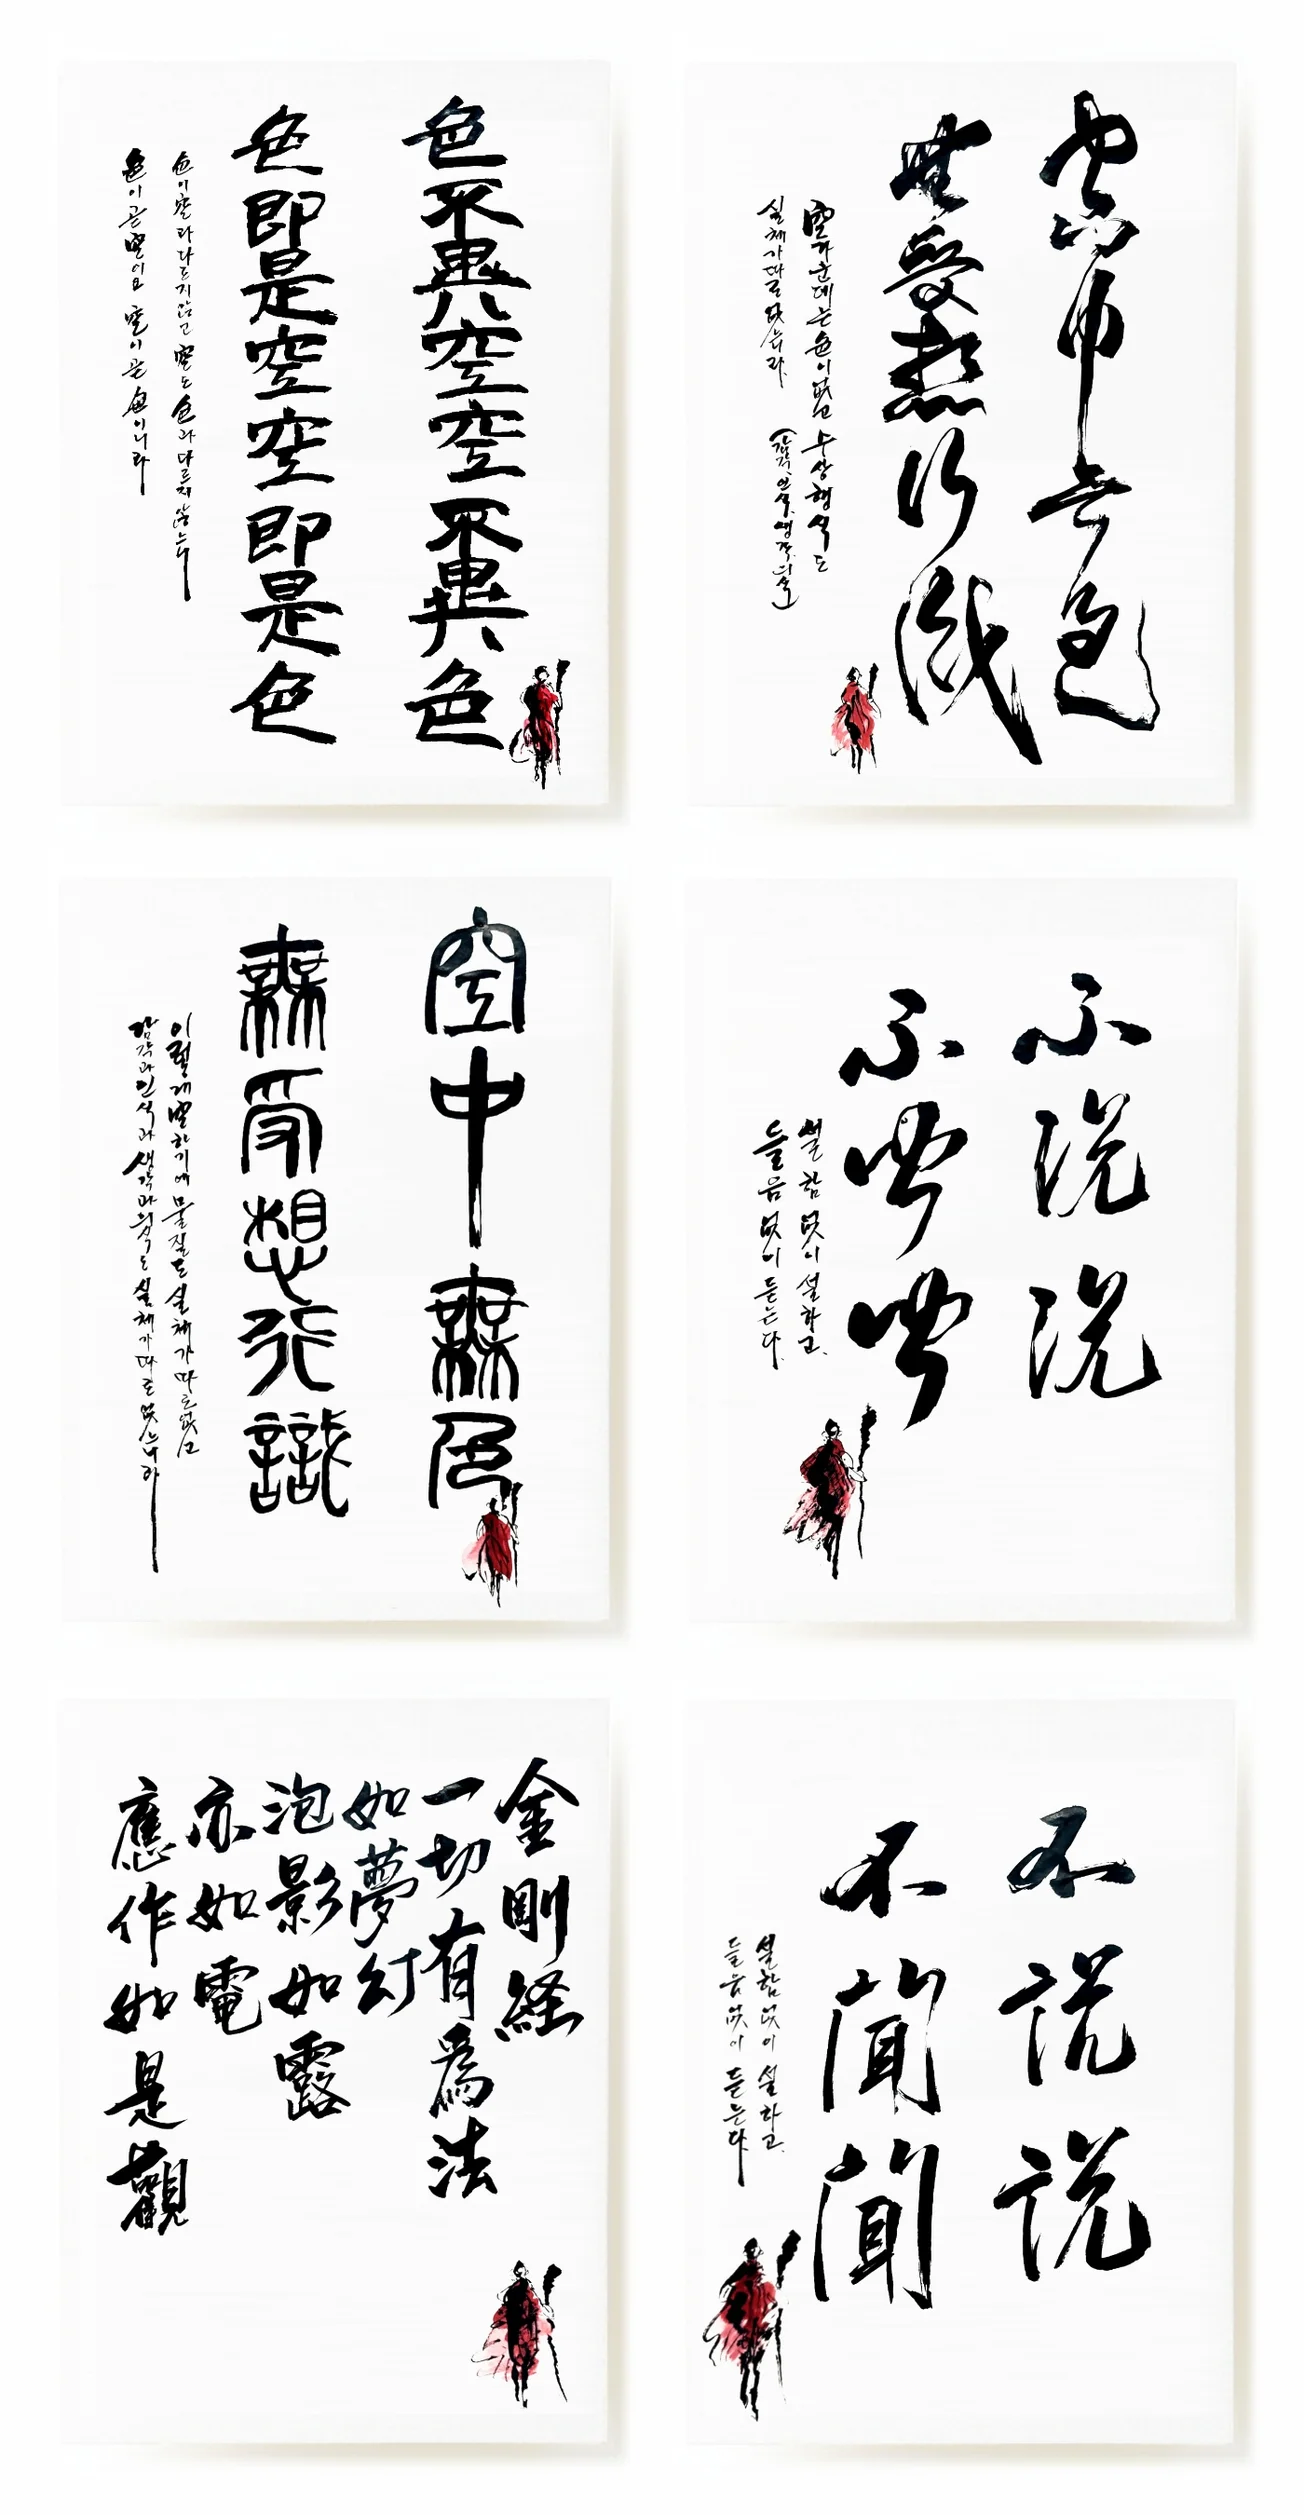 色不異空空不異色
色即是空空即是色
色이 空과 다르지 않고 空도 色과 다르지 않느니
色이 곧 空이요 空이 곧 色이니라
空中無色
無受想行識
空 가운데는 色이 없고 수상행식도
실체가 따로 없느니라.
(감각, 인식, 생각, 의식)
空中無色
無受想行識
이렇게 空하기에 물질도 실체가 따로 없고
감각과 인식과 생각과 의식도 실체가 따로 없느니라
不説説
不聞聞
설함 없이 설하고,
들음 없이 듣는다.
金剛経
一切有爲法
如夢幻
泡影如露
亦如電
應作如是觀
不説説
不聞聞
설함 없이 설하고,
들음 없이 듣는다